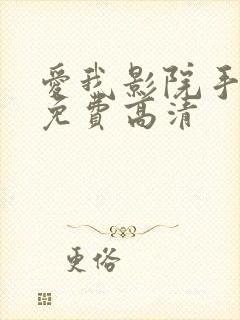 愛我影院手
免費高清
更俗